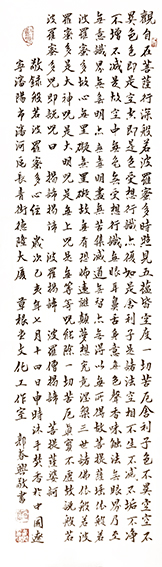 觀自在菩薩行深般若波羅蜜多時照見五蘊皆空度一切苦厄舍利子色不異空空不
異色色即是空空即是色受想行識亦復如是舍利子是諸法空相不生不滅不垢不淨
不增不減是故空中無色無受想行識無眼耳鼻舌身意無色聲香味觸法無眼界乃至
無意識界無無明亦無無明盡乃至無老死亦無老死盡無苦集滅道無智亦無得以無所得故菩提薩埵依般若
波羅蜜多故心無罣礙無罣礙故無有恐怖遠離顛倒夢想究竟涅槃三世諸佛依般若
波羅蜜多是大神咒是大明咒是無上咒是無等等咒能除一切苦厄真實不虛故說般若
波羅蜜多咒即說咒曰 揭諦揭諦 波羅揭諦 波羅僧揭諦 菩提薩婆訶
敬錄般若波羅蜜多心經 歲次己亥年七月十四日申時沐手焚香於中國遼
寧瀋陽市瀋河區長青街德陵大廈 章根玉文化工作室 郭春興敬書